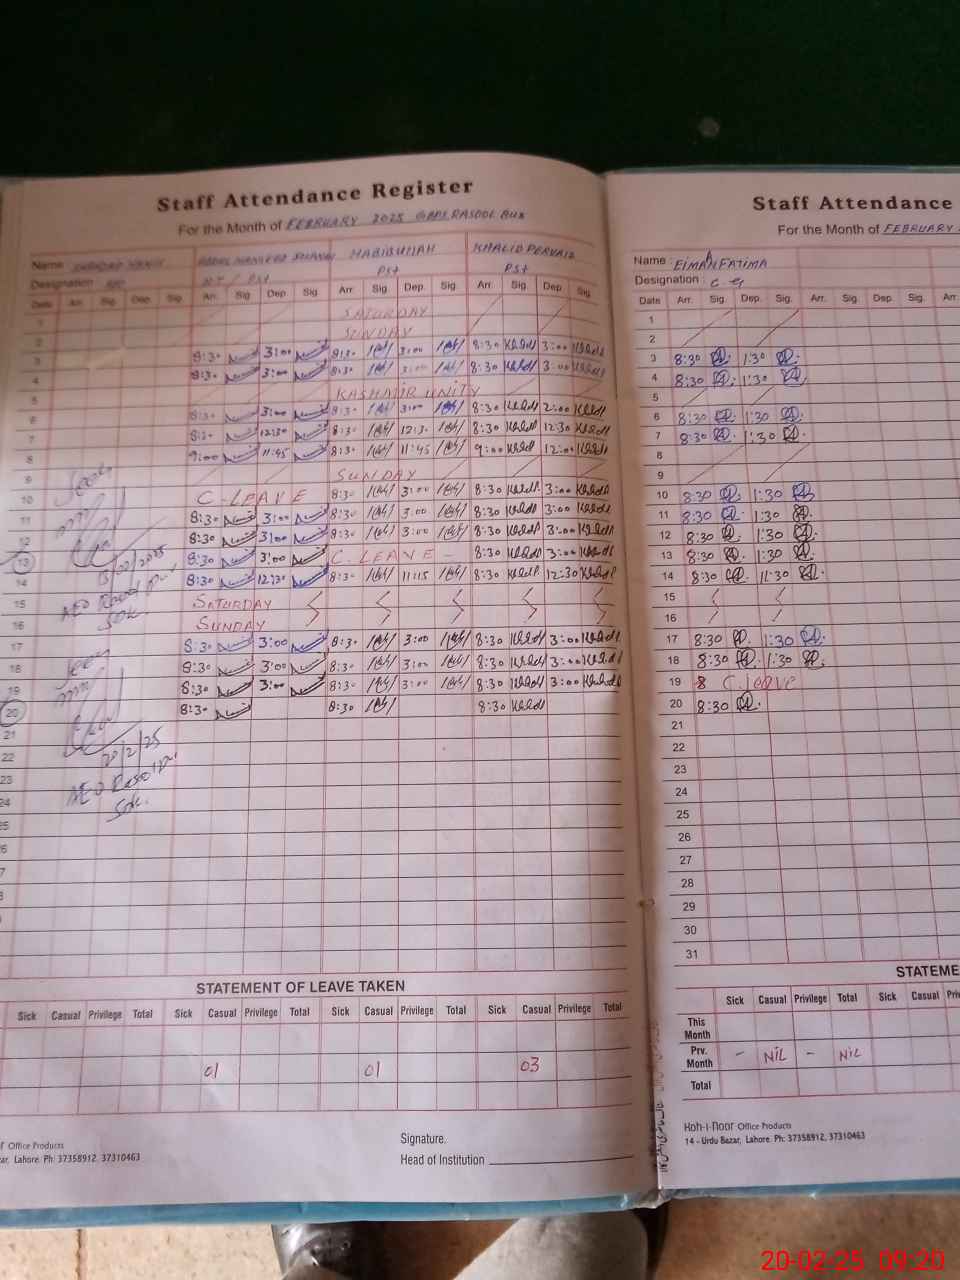 Staff Attendance Register
For the Month of FEBRUARY 2025 GBPS RASOOL BUX
Name HABIBULLAH KHALID PERVAIZ
Designation PST PST PST
Date Arr. Sig. Dep. Sig. Arr. Sig. Dep. Sig. Arr. Sig. Dep. Sig. Arr. Sig. Dep. Sig.
1 SATURDAY
2 SUNDAY
3 8:30 3:00 8:30 3:00 8:30 3:00
4 8:30 3:00 8:30 3:00 8:30 3:00
5 KASHMIR UNITY
6 8:30 3:00 8:30 3:00 8:30 2:00
7 8:30 12:30 8:30 12:30 8:30 12:30
8 9:00 11:45 8:30 11:45 9:00 12:00
9 SUNDAY
10 C-LEAVE 8:30 3:00 8:30 3:00
11 8:30 3:00 8:30 3:00 8:30 3:00
12 8:30 3:00 8:30 3:00 8:30 3:00
13 8:30 3:00 C.LEAVE - 8:30 3:00
14 8:30 12:30 8:30 11:15 8:30 12:30
15 SATURDAY
16 SUNDAY
17 8:30 3:00 8:30 3:00 8:30 3:00
18 8:30 3:00 8:30 3:00 8:30 3:00
19 8:30 3:00 8:30 3:00 8:30 3:00
20 8:30 8:30 8:30
21
22
23
24
25
13/02/2025
AEO
SDK.
20/2/25
AEO
SDK.
STATEMENT OF LEAVE TAKEN
Sick Casual Privilege Total Sick Casual Privilege Total Sick Casual Privilege Total Sick Casual Privilege Total
01 01 03
Office Products
Lahore. Ph: 37358912, 37310463
Signature.
Head of Institution
Staff Attendance
For the Month of FEBRUARY
Name : EIMAN FATIMA
Designation : C.G
Date Arr. Sig. Dep. Sig. Arr. Sig. Dep. Sig. Arr.
1
2
3 8:30 1:30
4 8:30 1:30
5
6 8:30 1:30
7 8:30 1:30
8
9
10 8:30 1:30
11 8:30 1:30
12 8:30 1:30
13 8:30 1:30
14 8:30 11:30
15
16
17 8:30 1:30
18 8:30 1:30
19 8 C.leave
20 8:30
21
22
23
24
25
26
27
28
29
30
31
STATEME
Sick Casual Privilege Total Sick Casual
This Month
Prv. Month - NIL - NIL
Total
Koh-i-noor Office Products
14 - Urdu Bazar, Lahore. Ph: 37358912, 37310463
20-02-25 09:20